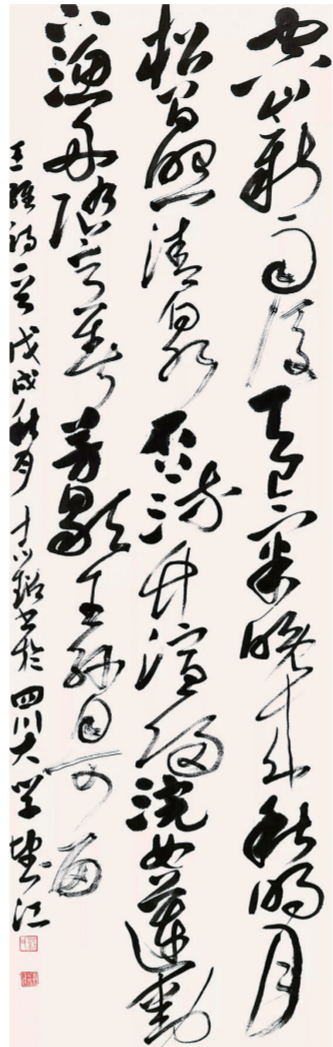 空山新雨後天氣晚来秋明月
松間照清泉石上流竹喧歸浣女蓮動
下漁舟隨意春芳歇王孫自可留
王維詩一首戊戌秋月書於四川大學望江